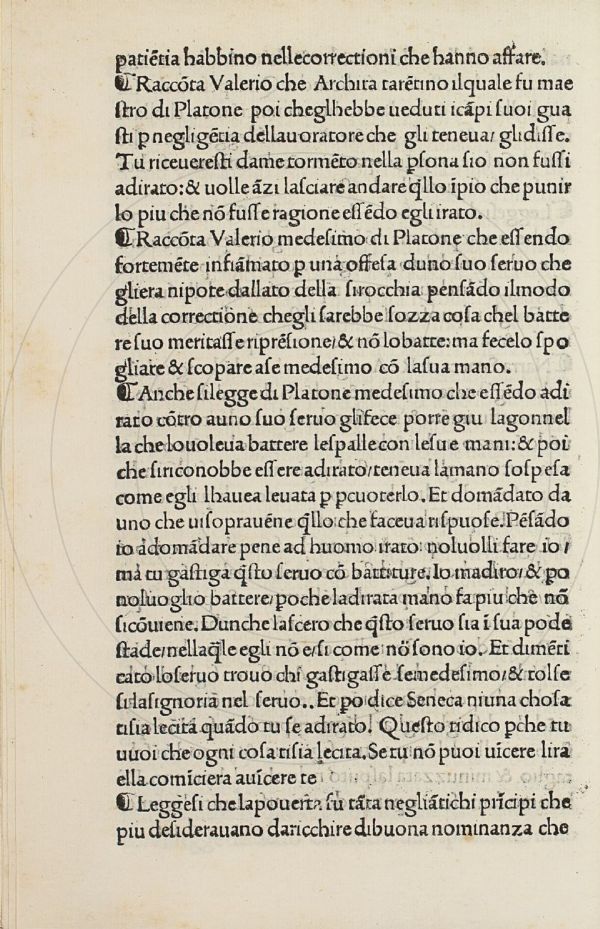 patiẽtia habbino nellecorrectioni che hanno affare.
¶ Raccõta Valerio che Archita tarẽtino ilquale fu mae
ſtro di Platone poi cheglhebbe ueduti icãpi ſuoi gua
ſti ꝑ negligẽtia dellauoratore che gli teneua/ glidiſſe.
Tu riceuereſti dame tormẽto nella ꝑſona ſio non fuſſi
adirato: & uolle ãzi laſciare andare q̃llo ĩpio che punir
lo piu che nõ fuſſe ragione eſſẽdo egli irato.
¶ Raccõta Valerio medeſimo di Platone che eſſendo
fortemẽte infiãmato ꝑ una offeſa duno ſuo ſeruo che
gliera nipote dallato della ſirocchia penſãdo ilmodo
della correctione chegli ſarebbe ſozza coſa chel batte
re ſuo meritaſſe riprẽſione/& nõ lobatte: ma fecelo ſpo
gliare & ſcopare aſe medeſimo cõ laſua mano.
¶ Anche ſilegge di Platone medeſimo che eſſẽdo adi
rato cõtro auno ſuo ſeruo glifece porre giu lagonnel
la che louoleua battere leſpalle con leſue mani: & poi
che ſiriconobbe eſſere adirato/teneua lamano ſoſpeſa
come egli lhauea leuata ꝑ ꝑcuoterlo. Et domãdato da
uno che uiſoprauẽne q̃llo che faceua riſpuoſe. Pẽſãdo
io adomãdare pene ad huomo irato: noluolli fare io/
ma tu gaſtiga q̃ſto ſeruo cõ battiture. Io madiro/& po
noluoglio battere/poche ladirata mano fa piu che nõ
ſicõuiene. Dunche laſcero che q̃ſto ſeruo ſia ĩ ſua pode
ſtade/nellaq̃le egli nõ e/ſi come nõ ſono io. Et dimẽti
cato loſeruo trouo chi gaſtigaſſe ſemedeſimo/& tolſe
ſi laſignoria nel ſeruo.. Et po dice Seneca niuna choſa
tiſia lecita quãdo tu ſe adirato. Queſto tidico ꝑche tu
uuoi che ogni coſa tiſia lecita. Se tu nõ puoi uicere lira
ella comĩciera auĩcere te
¶ Leggeſi che lapouerta fu tãta negliãtichi prĩcipi che
piu deſiderauano daricchire dibuona nominanza che